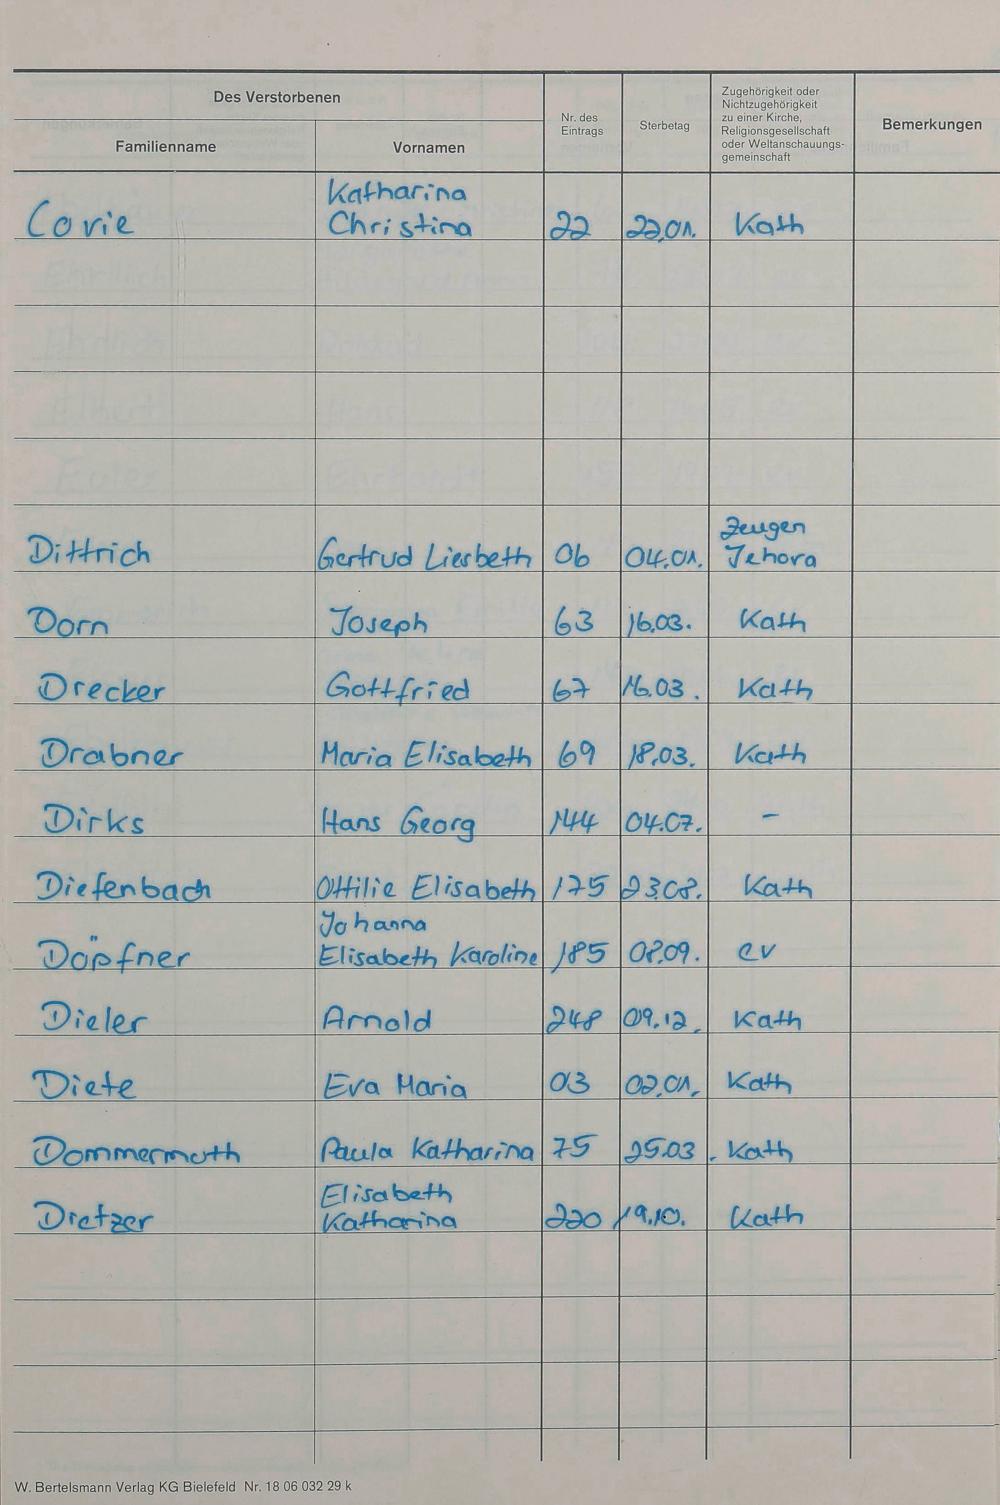 Des Verstorbenen
Familienname
Vornamen
Nr. des
Eintrags
Sterbetag
Zugehörigkeit oder
Nichtzugehörigkeit
zu einer Kirche,
Religionsgesellschaft
oder Weltanschauungs-
gemeinschaft
Bemerkungen
Katharina
Corie Christina 22 22.01. Kath
Zeugen
Dittrich Gertrud Liesbeth 06 04.01. Jehova
Dorn Joseph 63 16.03. Kath
Drecker Gottfried 67 16.03. Kath
Drabner Maria Elisabeth 69 18.03. Kath
Dirks Hans Georg 144 04.07. -
Diefenbach Ottilie Elisabeth 175 23.08. Kath
Johanna
Döpfner Elisabeth Karoline 185 08.09. ev
Dieler Arnold 248 09.12. Kath
Diete Eva Maria 03 02.01. Kath
Dommermuth Paula Katharina 75 25.03. Kath
Elisabeth
Dietzer Katharina 220 19.10. Kath
W. Bertelsmann Verlag KG Bielefeld Nr. 18 06 032 29 k